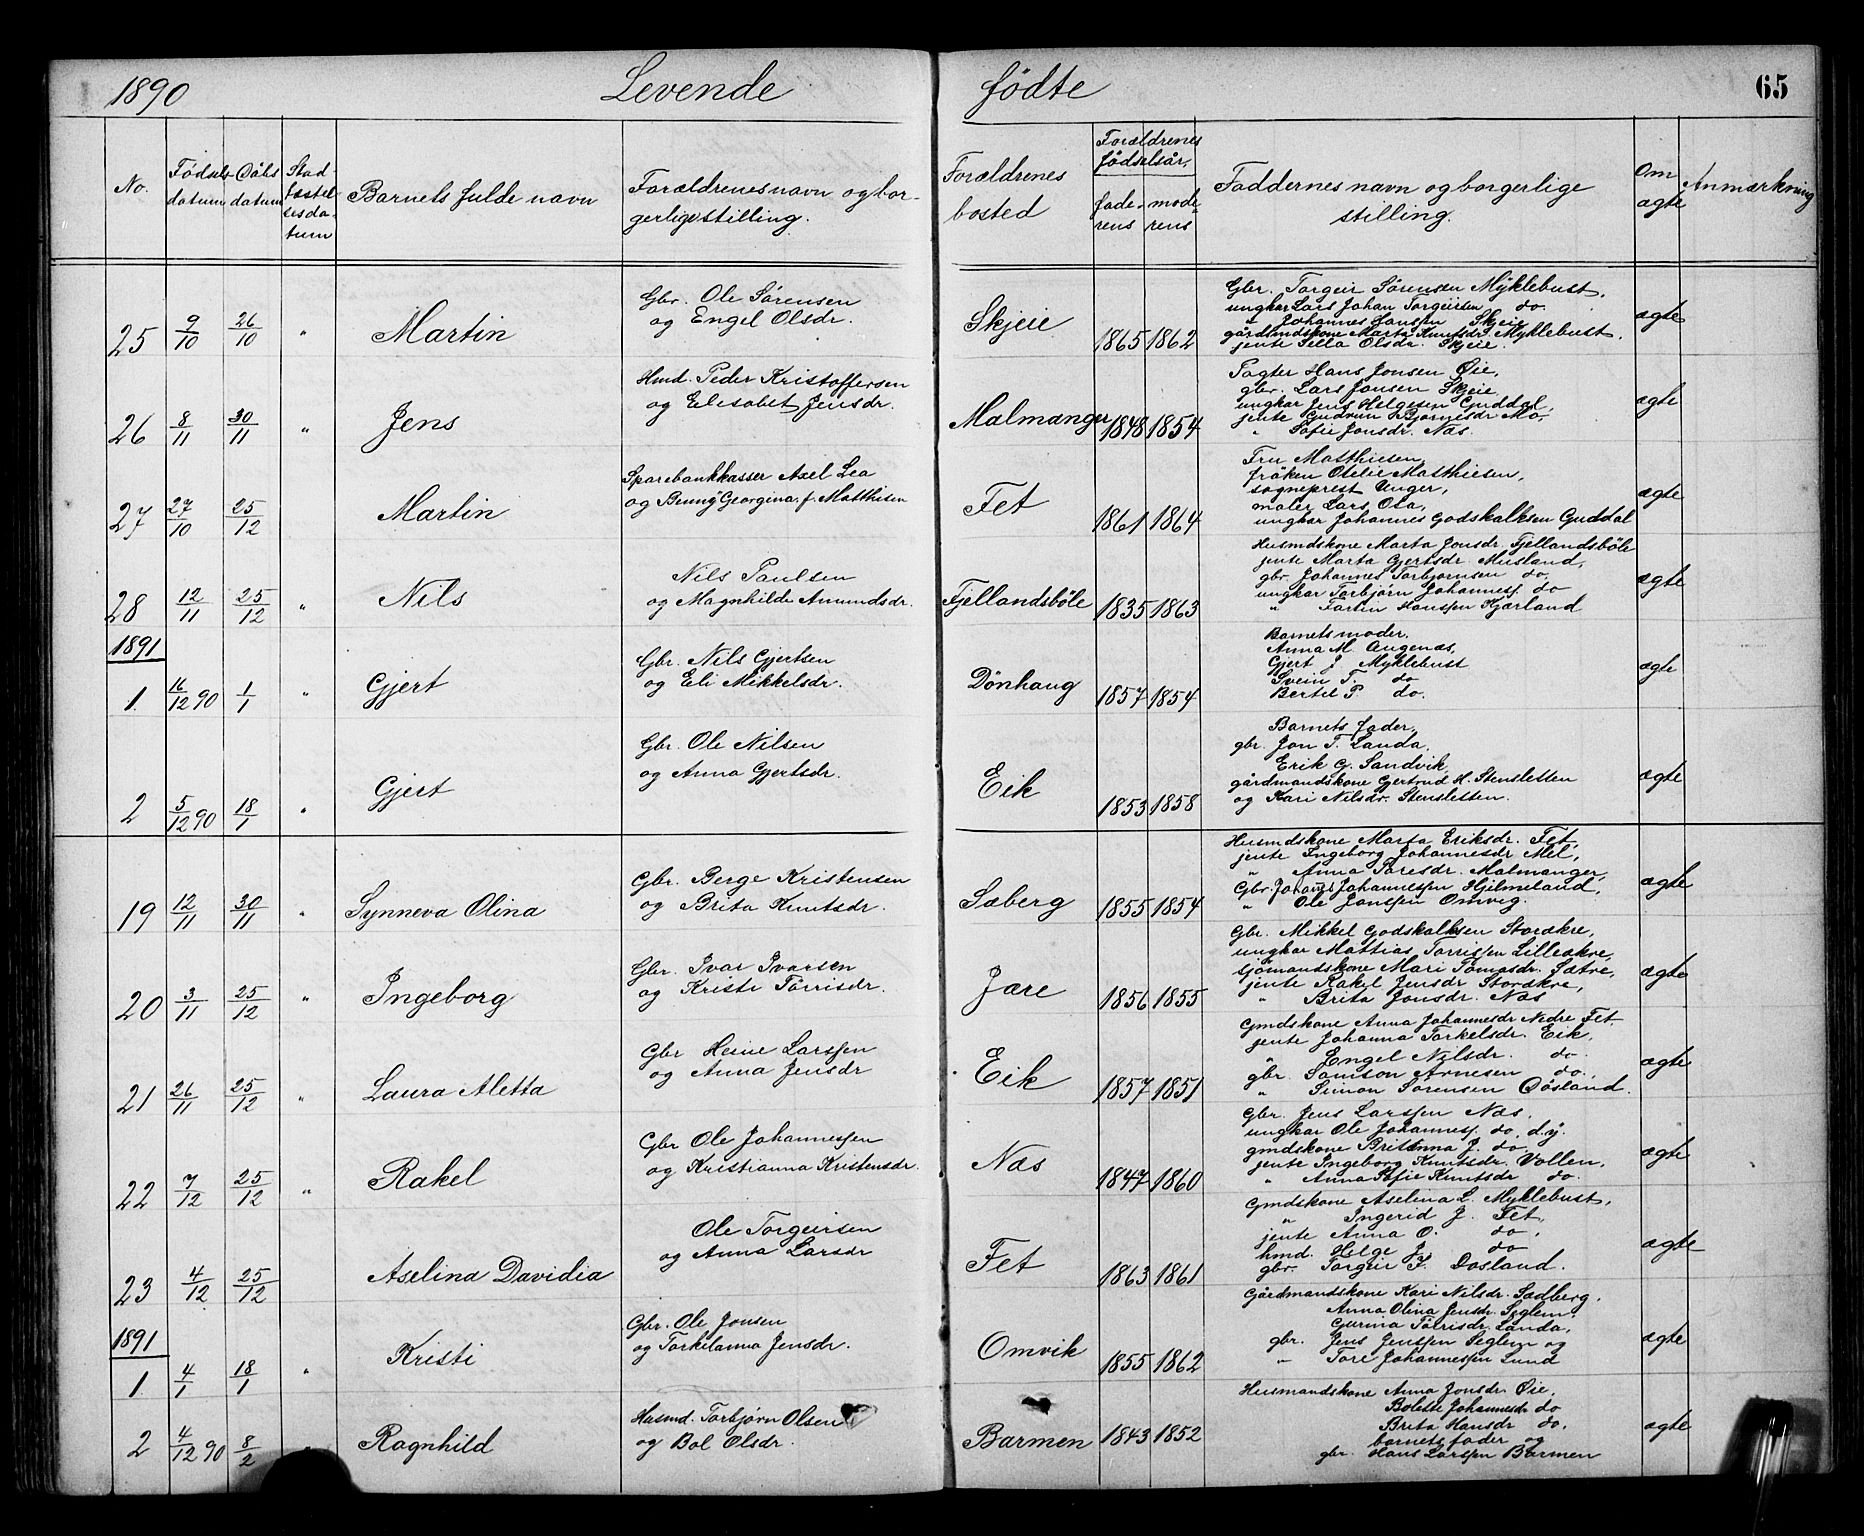 1890 Levende fødte 65
No. Fødselsdatum Dåbsdatum Stadfæstelsesdatum Barnets fulde navn Forældrenes navn og borgerlige stilling. Forældrenes bosted Forældrenes fødselsår. faderens moderens Faddernes navn og borgerlige stilling. Om ægte Anmærkning
25 9/10 26/10 " Martin
Gbr. Ole Sørensen
og Engel Olsdr.
Skjeie 1865 1862
Gbr. Torgeir Sørensen Myklebust,
ungkar Lars Johan Torgeirsen do.
" Johannes Hansen Skjeie
gårdmandskone Marta Knutsdr. Myklebust.
jente Sella Olsdr. Skjeie.
ægte
26 8/11 30/11 " Jens
Hmd. Peder Kristoffersen
og Elisabet Jensdr.
Malmanger 1848 1854
Pagter Hans Jonsen Øie,
gbr. Lars Jonsen Skjeie
ungkar Jens Helgesen Guddal,
jente Gudrun Bjørnesdr Mo,
" Sofie Jonsdr. Næs.
ægte
27 27/10 25/12 Martin
Sparebankkasser Axel Lea
og Bruny Georgina, f. Matthisen
Fet 1861 1864
Fru Matthiesen,
frøken Otelie Matthiesen,
sogneprest Unger,
maler Lars Ota,
ungkar Johannes Godskalksen Guddal
ægte
28 12/11 25/12 " Nils
Nils Paulsen
og Magnhilde Amundsdr.
Fjellandsbøle 1835 1863
Husmdskone Marta Jonsdr. Fjellandsbøle
jente Marta Gjertsdr Musland,
gbr. Johannes Torbjørnsen do,
ungkar Torbjørn Johannesf. do
" Hansen Kjærland
ægte
1891
1. 16/12 90 1/1 " Gjert
Gbr. Nils Gjertsen
og Eli Mikkelsdr.
Dønhaug 1857 1854
Barnets moder.
Anna M. Augenæs,
Gjert J Myklebust
Svein T. do
Bertel P do.
ægte
2 5/12 90 18/1 " Gjert
Gbr. Ole Nilsen
og Anna Gjertsdr.
Eik 1853 1858
Barnets fader,
gbr. Jon T. Landa,
Erik G. Sandvik,
gårdmandskone Gjertrud H. Stensletten
og Kari Nilsdr. Stensletten.
ægte
19 12/11 30/11 " Synneva Olina
Gbr. Berge Kristensen
og Brita Knutsdr.
Sæberg 1855 1854
Husmdskone Marta Eriksdr. Fet,
jente Ingeborg Johannesdr Mel,
" Anna Toresdr. Malmanger,
Gbr. Johannes Johannessen Hjelmeland,
" Ole Jonssen Omvig.
ægte
20 3/11 25/12 " Ingeborg
Gbr. Ivar Ivarsen
og Kristi Torrisdr.
Jære 1856 1855
Gbr. Mikkel Godskalksen Storækre,
ungkar Mattias Torrissen Lilleækre,
sjømandskone Mari Tomasdr. Sætre,
jente Rakel Jensdr Storækre,
" Brita Jonsdr. Næs
ægte
21 26/11 25/12 " Laura Aletta
Gbr Heine Larssen
og Anna Jensdr
Eik 1857 1851
Gmdskone Anna Johannesdr Nedre Fet,
jente Johanna Torkelsdr. Eik,
" Engel Nilsdr. do.
gbr. Samson Arnesen do.,
" Simon Sørensen Døsland.
ægte
22 7/12 25/12 " Rakel
Gbr Ole Johannessen
og Kristianna Kristensdr.
Næs 1847 1860
Gbr. Jens Larssen Næs,
ungkar Ole Johannesf. do, d.y.
gmdskone Britanna J. do,
jente Ingeborg Knutsdr. Vollen,
" Anna Sofie Knutsdr do.
ægte
23 4/12 25/12 Aselina Davidia
Ole Torgeirsen
og Anna Larsdr
Fet 1863 1861
Gmdskone Aselina L. Myklebust,
" Ingerid J. Fet,
jente Anna O. do,
hmd. Helge J. do
gbr. Torgeir F. Døsland.
ægte
1891
1. 4/1 18/1 " Kristi
Gbr. Ole Jonsen
og Torkilanna Jensdr.
Omvik 1855 1862
Gårdmandskone Kari Nilsdr. Sædberg,
Anna Olina Jensdr. Seglem
Gurina Torrisdr. Landa,
gbr. Jens Jenssen Seglem og
" Tore Johannessen Lund
ægte
2 4/12 90 8/2 " Ragnhild
Husmd. Torbjørn Olsen
og Bol Olsdr.
Barmen 1843 1852
Husmandskone Anna Jonsdr. Øie,
Bolette Johannesdr do
Brita Hansdr do.
barnets fader og
gbr. Hans Larssen Barmen
ægte